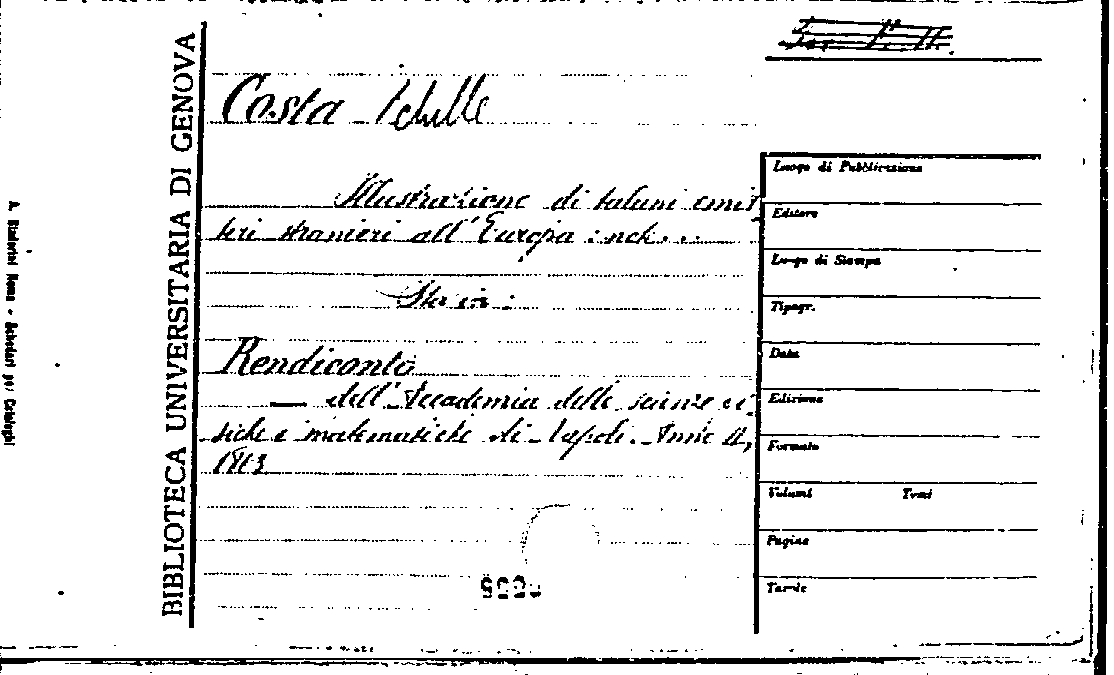 BIBLIOTECA UNIVERSITARIA DI GENOVA
Costa Achille
Illustrazione di taluni emit
teri stranieri all'Europa
Sta in:
Rendiconto
— dell'Accademia delle scienze fi
siche e matematiche di Napoli. Anno II,
1863
Luogo di Pubblicazione
Editore
Luogo di Stampa
Tipogr.
Data
Edizione
Formato
Volumi Tomi
Pagine
Tavole
Roma - Schedari per Cataloghi